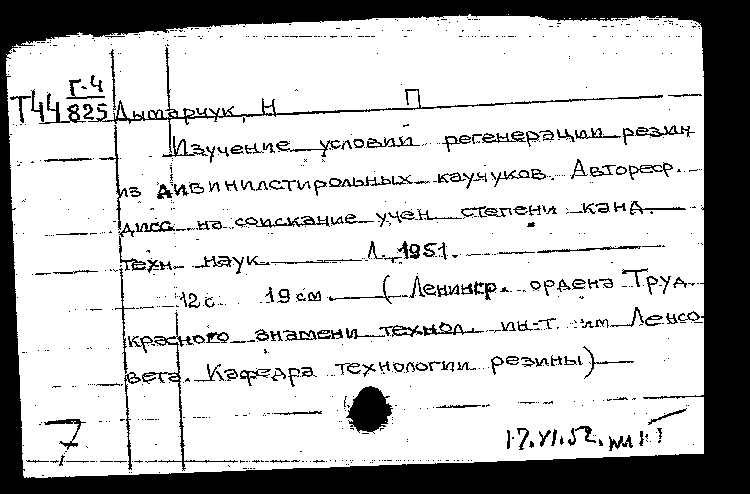 Т44 Г-4
825 Дымарчук, Н П
Изучение условий регенерации резин
из дивинилстирольных каучуков. Автореф.
дисс на соискание учен степени канд.
техн. наук. Л. 1951.
12 с. 19 см. (Ленингр. ордена Труд.
красного знамени технол. ин-т им Ленсо-
вета. Кафедра технологии резины)
7 17.VI.52.